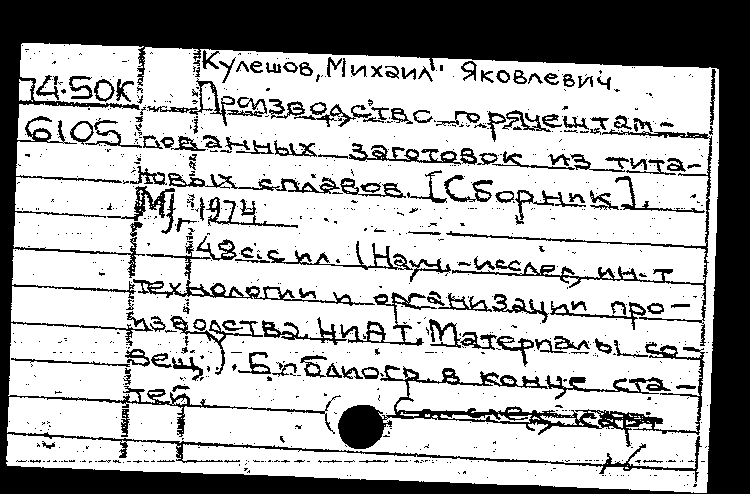 Кулешов, Михаил Яковлевич.
74-50К Производство горячештам-
6105 пованных заготовок из тита-
новых сплавов. [Сборник].
М], 1974.
48 с. с ил. (Науч.-исслед. ин-т
технологии и организации про-
изводства. НИАТ. Материалы со-
вещ.). Библиогр. в конце ста-
тей.
(См. след. карт